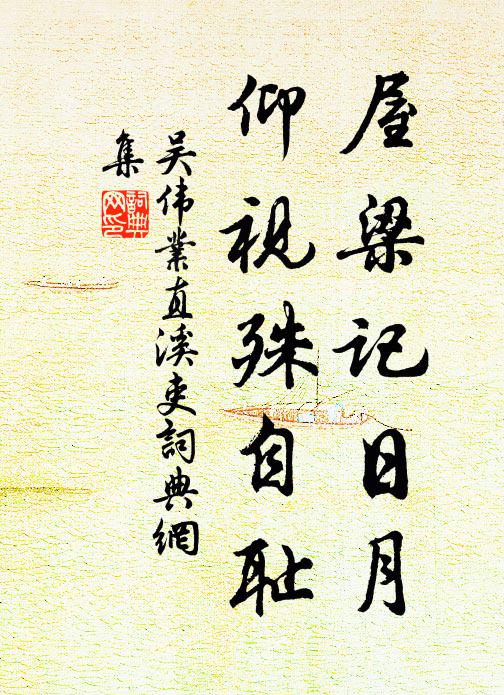 屋梁记日月
仰视殊自耻
吴伟業直溪吏詞典網
集
詞典网印